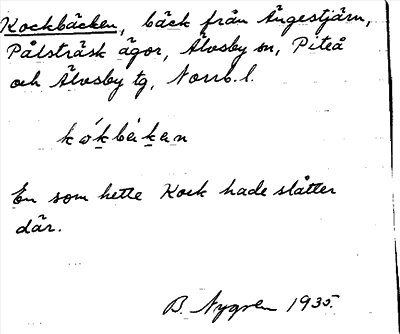 Kockbäcken, bäck från Ängestjärn,
Pålsträsk ägor, Älvsby sn, Piteå
och Älvsby tg, Norrb. l.
kókbèken
En som hette Kock hade slåtter
där.
B. Nygren 1935.